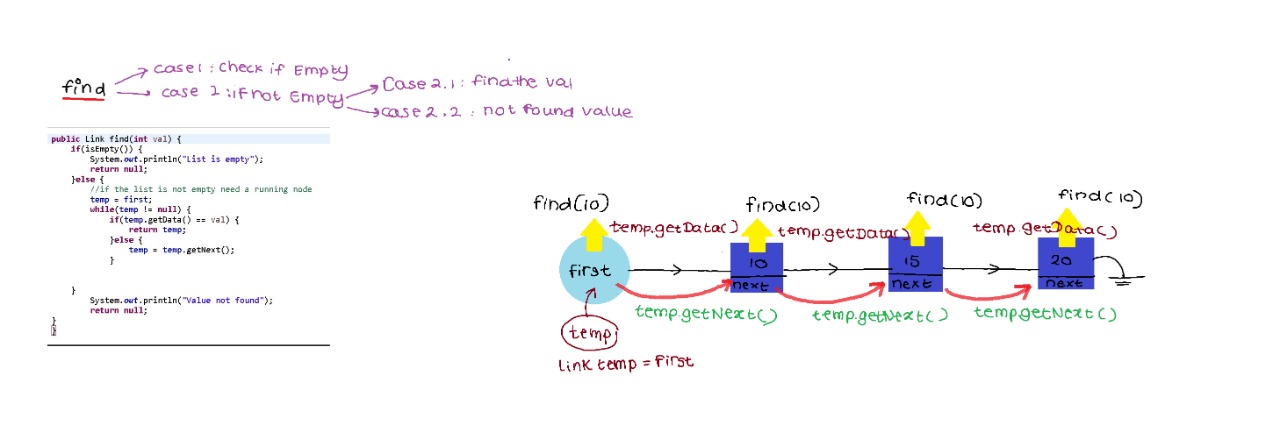 find
case1 : Check if Empty
case 2 : if not Empty
Case 2.1 : find the val
case 2.2 : not found value
public Link find(int val) {
if(isEmpty()) {
System.out.println("List is empty");
return null;
}else {
//if the list is not empty need a running node
temp = first;
while(temp != null) {
if(temp.getData() == val) {
return temp;
}else {
temp = temp.getNext();
}
}
System.out.println("Value not found");
return null;
}
}
find(10)
find(10)
find(10)
find(10)
temp.getData()
temp.getData()
temp.getData()
first
10
next
15
next
20
next
temp.getNext()
temp.getNext()
temp.getNext()
temp
Link temp = first